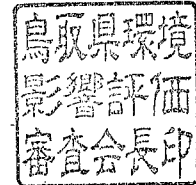 鳥取県環境
影響評価
審査会長印